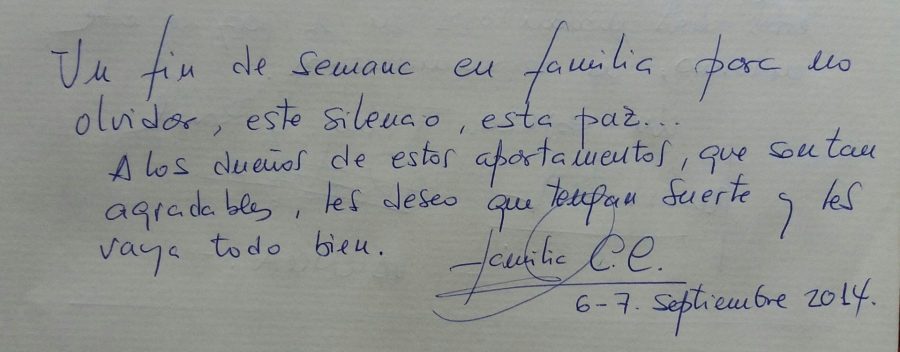 Un fin de semana en familia para no
olvidar, este silencio, esta paz...
A los dueños de estos apartamentos, que son tan
agradables, les deseo que tengan suerte y les
vaya todo bien.
familia C.C.
6-7. septiembre 2014.